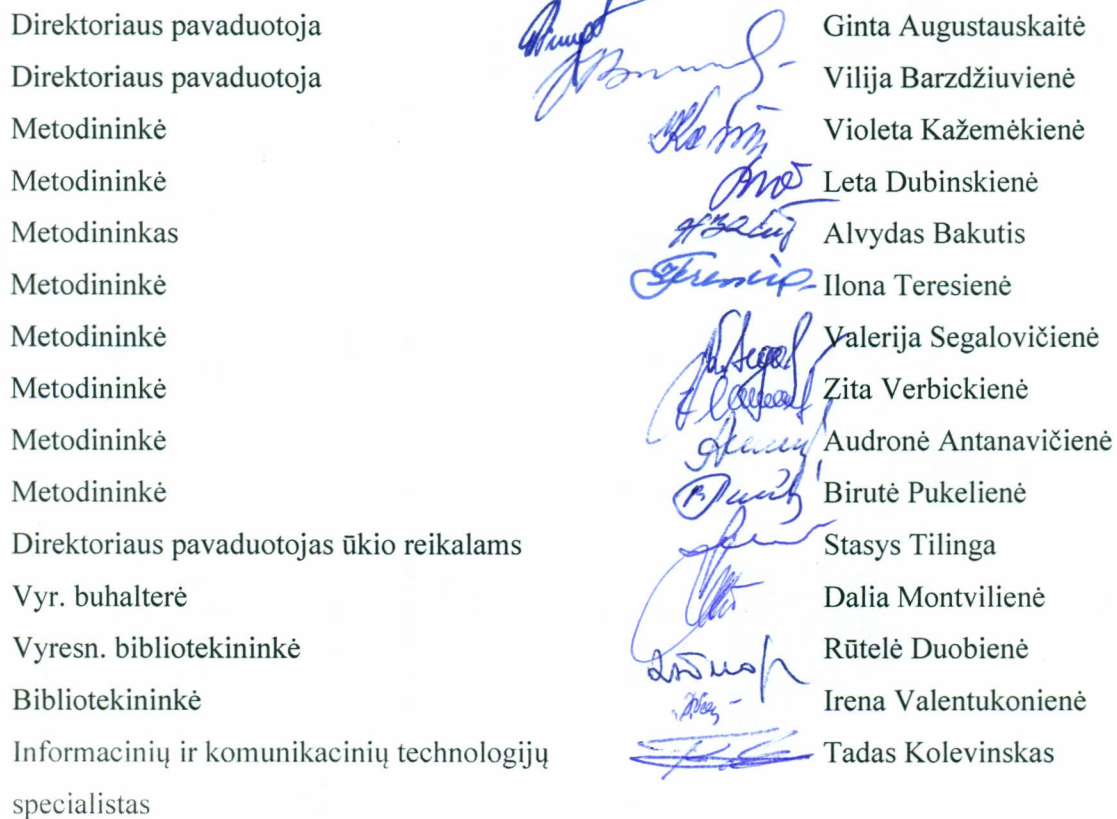 Direktoriaus pavaduotoja Ginta Augustauskaitė
Direktoriaus pavaduotoja Vilija Barzdžiuvienė
Metodininkė Violeta Kažemėkienė
Metodininkė Leta Dubinskienė
Metodininkas Alvydas Bakutis
Metodininkė Ilona Teresienė
Metodininkė Valerija Segalovičienė
Metodininkė Zita Verbickienė
Metodininkė Audronė Antanavičienė
Metodininkė Birutė Pukelienė
Direktoriaus pavaduotojas ūkio reikalams Stasys Tilinga
Vyr. buhalterė Dalia Montvilienė
Vyresn. bibliotekininkė Rūtelė Duobienė
Bibliotekininkė Irena Valentukonienė
Informacinių ir komunikacinių technologijų Tadas Kolevinskas
specialistas